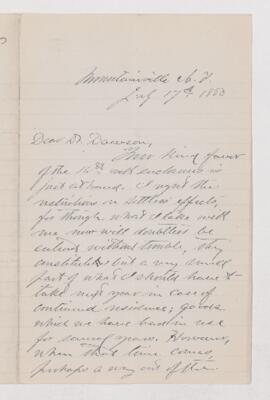 Mountainville N.Y.
July 17th 1883
Dear Dr. Dawson,
Your kind favor
of the 14th with enclosure is
just at hand. I regret the
restrictions in settlers' effects,
for though what I take with
me now will doubtless be
entered without trouble, they
constitute but a very small
part of what I should have to
take next year in case of
continued residence; goods
which we have had in use
for several years. However,
when that time comes,
perhaps a way out of the